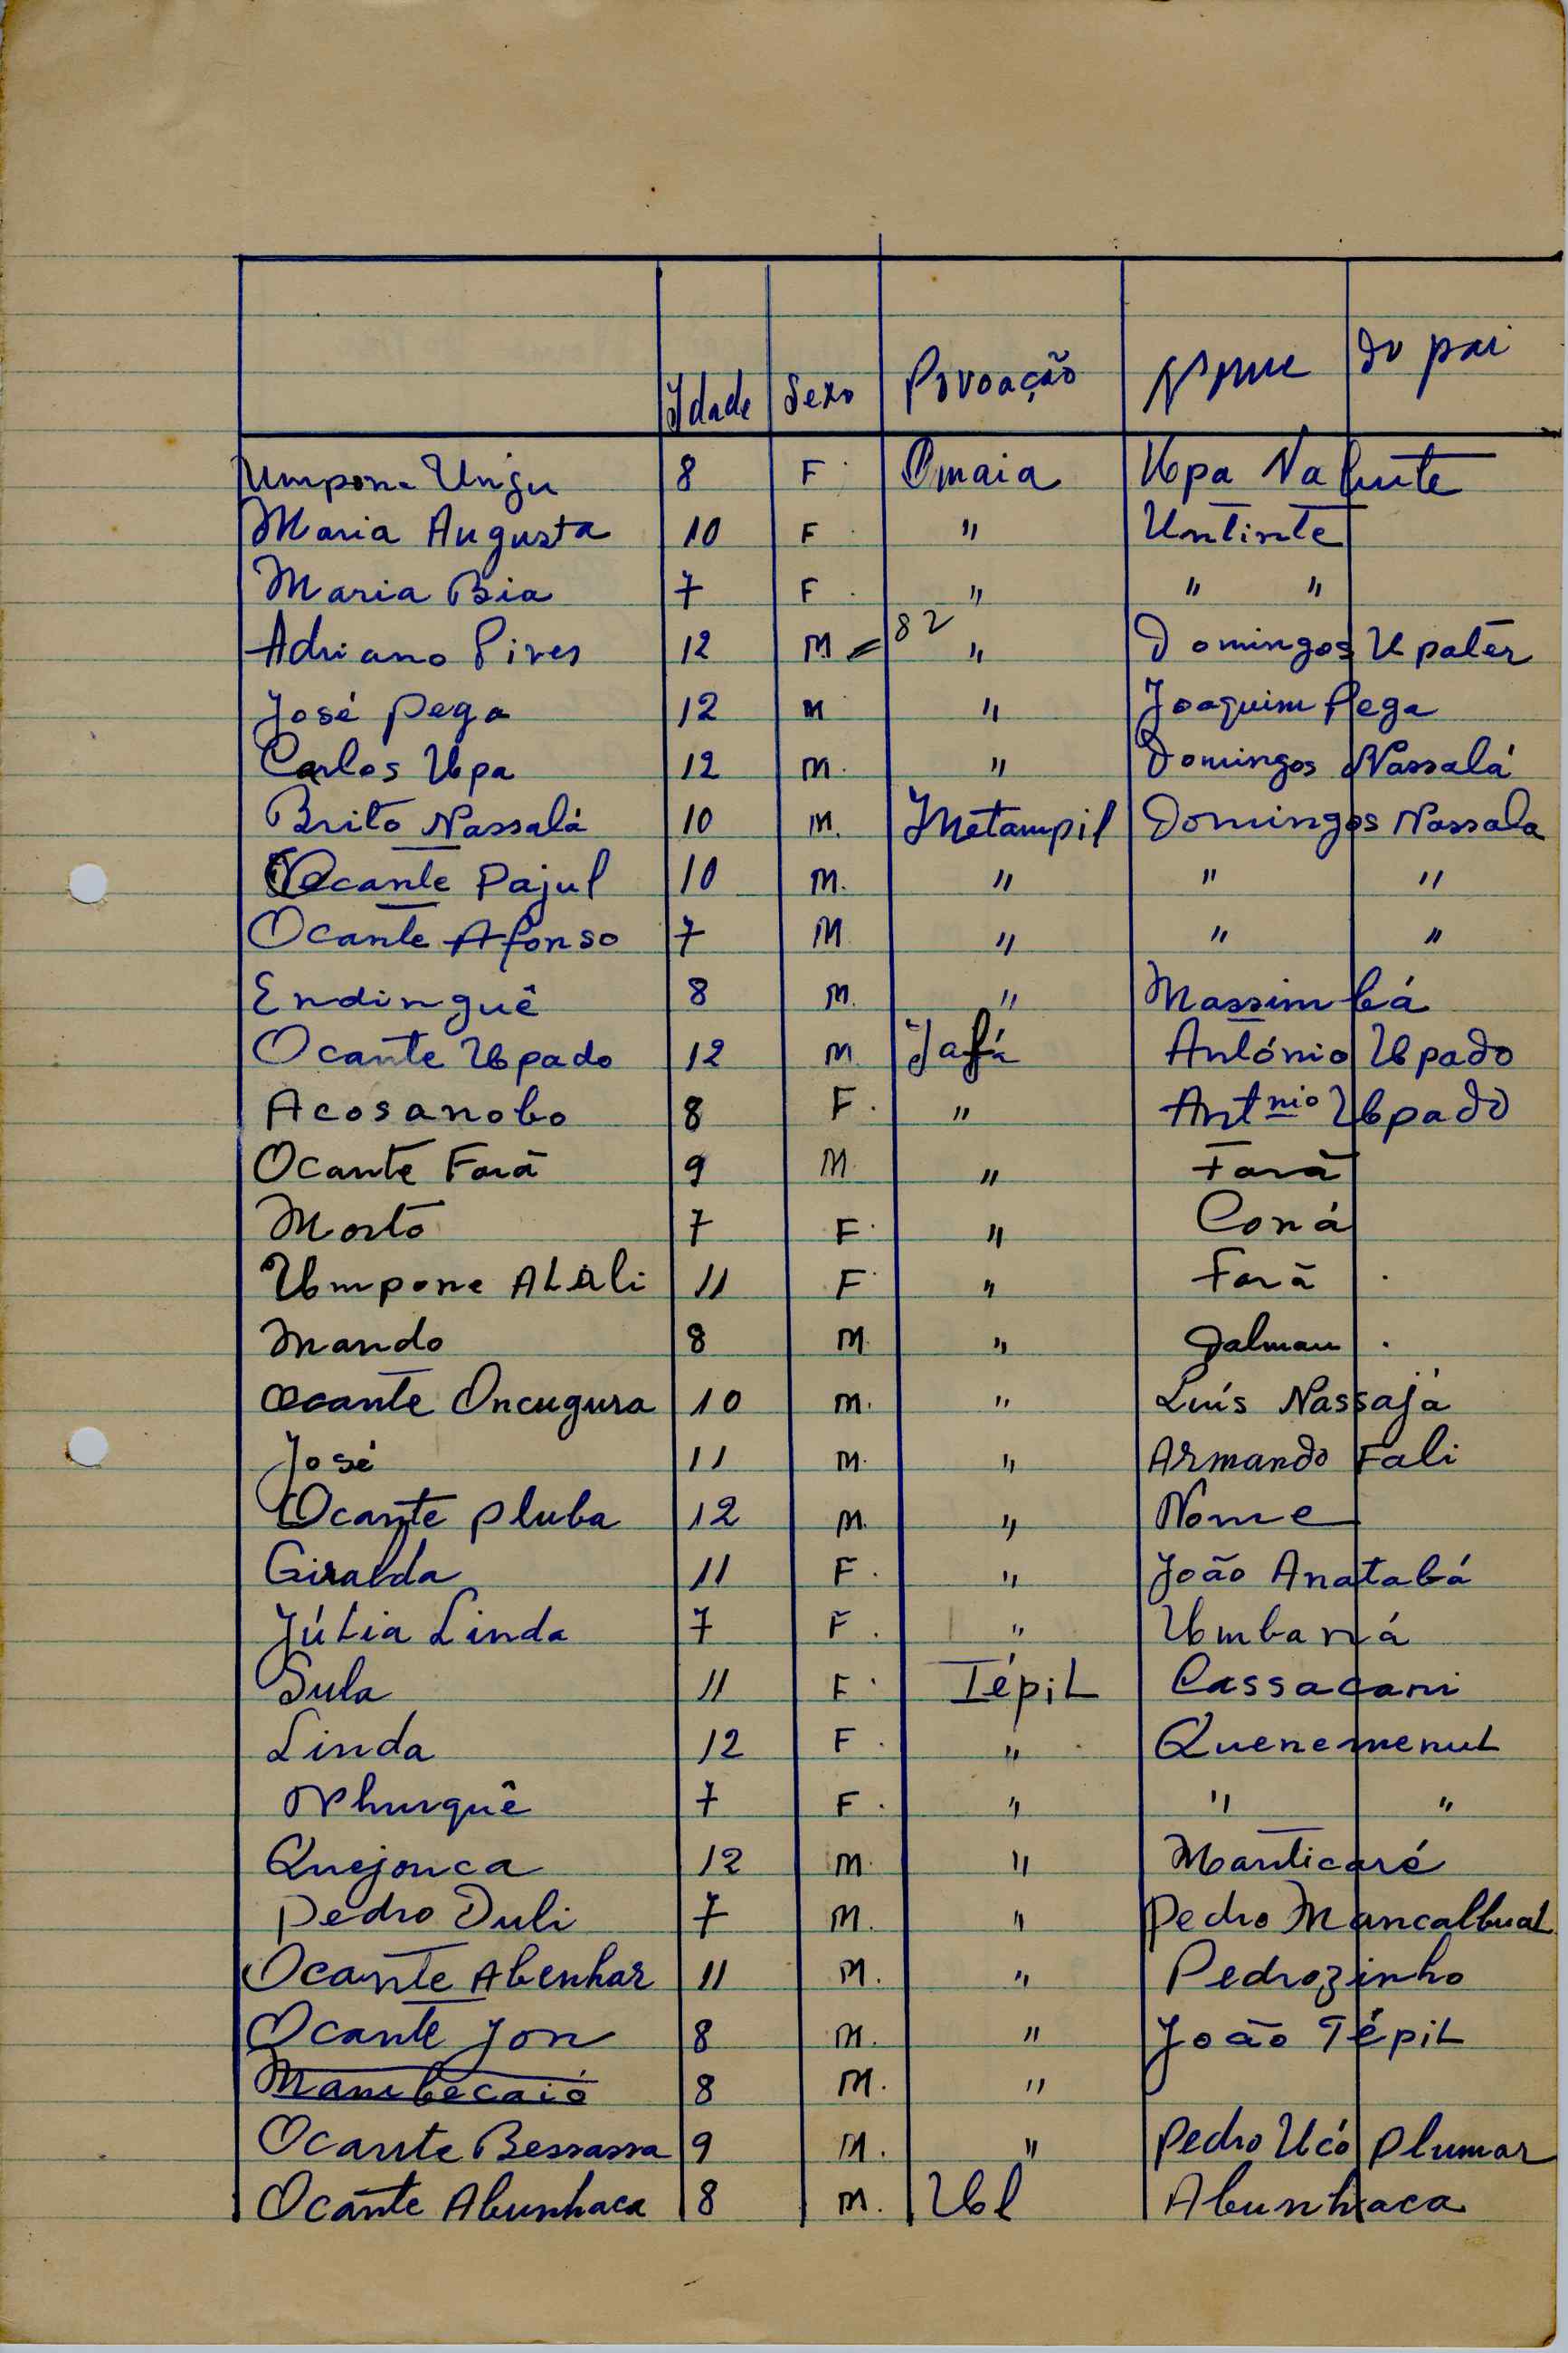 Idade Sexo Povoação Nome do pai
Umpone Ungu 8 F. Omaia Upa Nabute
Maria Augusta 10 F. " Untinte
Maria Bia 7 F. " " "
Adriano Pires 12 M 82 " Domingos Upater
José Pega 12 M " Joaquim Pega
Carlos Upa 12 M. " Domingos Nassalá
Brito Nassalá 10 M. Metampil Domingos Nassala
Ocante Pajul 10 M. " " "
Ocante Afonso 7 M " " "
Endinguê 8 M. " Massimbá
Ocante Upado 12 M Jafá António Upado
Acosanobo 8 F. " Antnio Upado
Ocante Farã 9 M. " Farã
Morto 7 F. " Coná
Umpone Alali 11 F. " Farã .
Mando 8 M " Dalmau .
Ocante Oncugura 10 M. " Luís Nassajá
José 11 M. " Armando Fali
Ocante Pluba 12 M. " Nome
Giralda 11 F. " João Anatabá
Júlia Linda 7 F. " Umbaná
Sula 11 F. Tépil Cassacani
Linda 12 F. " Quenemenul
Nhunquê 7 F. " " "
Quejonca 12 M " Manticaré
Pedro Duli 7 M. " Pedro Mancalbual
Ocante Abenhar 11 M. " Pedrozinho
Ocante Jon 8 M. " João Tépil
Mambecaió 8 M. "
Ocante Bessassa 9 M. " Pedro Ucó Plumar
Ocante Abunhaca 8 M. Ubl Abunhaca